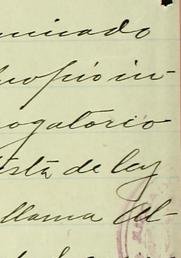 unicado
propio in-
rogatorio
ista de ley
llama Al-